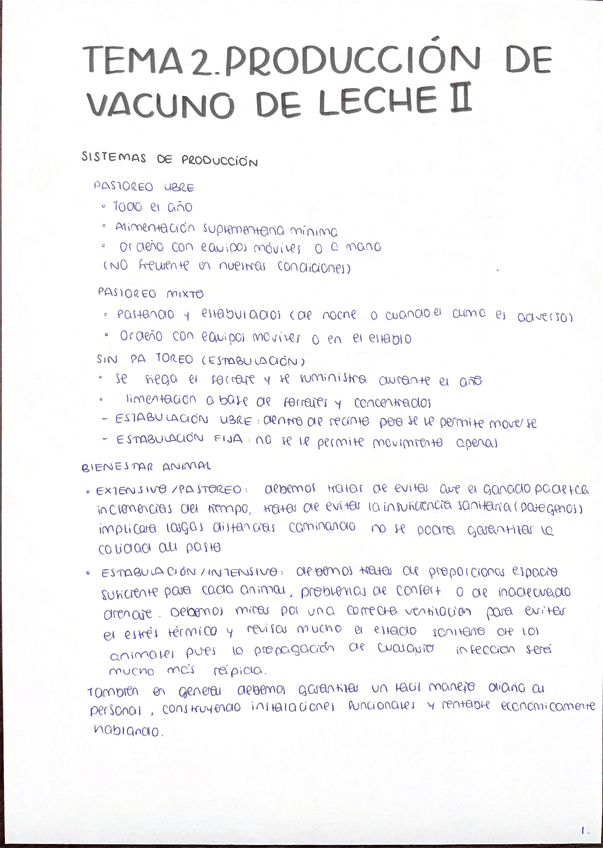 TEMA 2. PRODUCCIÓN DE
VACUNO DE LECHE II
SISTEMAS DE PRODUCCIÓN
PASTOREO LIBRE
• Todo el año
• Alimentación suplementaria mínima
• Ordeño con equipos móviles o a mano
(NO frecuente en nuestras condiciones)
PASTOREO MIXTO
• Pastando y estabulados (de noche o cuando el clima es adverso)
• Ordeño con equipos móviles o en el establo
SIN PA TOREO (ESTABULACIÓN)
• Se siega el forraje y se suministra durante el año
• limentación a base de forrajes y concentrados
- ESTABULACIÓN LIBRE: dentro de recinto pero se le permite moverse
- ESTABULACIÓN FIJA: no se le permite movimiento apenas
BIENESTAR ANIMAL
• EXTENSIVO/PASTOREO: debemos tratar de evitar que el ganado padezca
inclemencias del tiempo, tratar de evitar la insuficiencia sanitaria (patógenos)
implicara largas distancias caminando no se podrá garantizar la
calidad del pasto
• ESTABULACIÓN/INTENSIVO: debemos tratar de proporcionar espacio
suficiente para cada animal, problemas de confort o de inadecuado
drenaje. Debemos mirar por una correcta ventilación para evitar
el estrés térmico y revisar mucho el estado sanitario de los
animales pues la propagación de cualquier infección será
mucho más rápida.
También en general debemos garantizar un fácil manejo diario al
personal, construyendo instalaciones funcionales y rentable económicamente
hablando.
1.